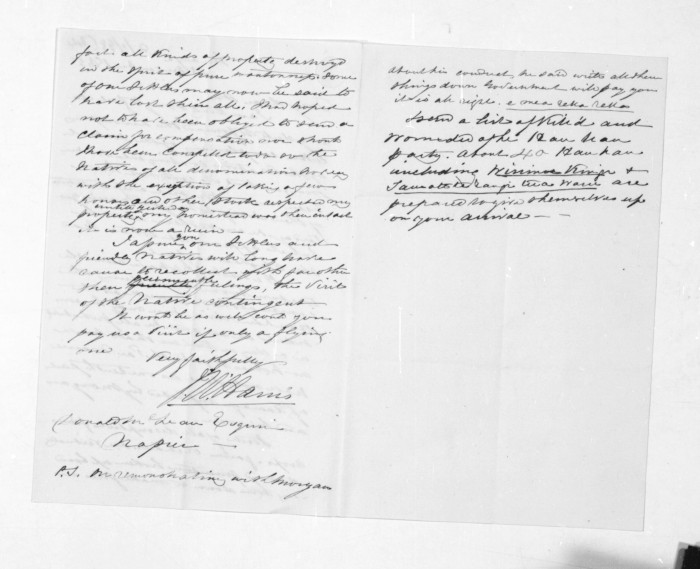 fact all kinds of property destroyed
in the spirit of pure wantonness. Some
of our Settlers may now be said to
have lost their all. I had hoped
not to have been obliged to send a
claim for compensation over
I have been compelled to do so the
Natives of all denominations
with the exception of taking a few
horses and other Stock respected my
property until quite our homestead was then intact
it is now a ruin —
I assure you our Settlers and
friendly Natives will long have
cause to recollect with
then feelings, the visit
of the Native Contingent
It wont be as well wont you
pay us a Visit if only a flying
one Very faithfully
J W Harris
Donald McLean Esquire
Napier —
P.S. On remonstrating with Morgan
about his conduct, he said write all these
things down Government will pay you
it is all right.
I send a list of Killd and
Wounded of the Hau Hau
party, about 40 Hau hau
including &
are
prepared to give themselves up
on your arrival —